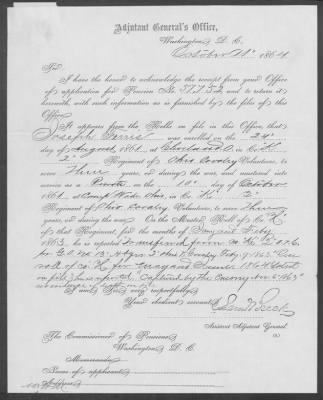 Adjutant General's Office,
Washington, D. C.
October 1864
Sir:
I have the honor to acknowledge the receipt from your Office
of application for Pension No. 57752, and to return it
herewith, with such information as is furnished by the files of this
Office.
It appears from the Rolls on file in this Office, that
Joseph was enrolled on the 24"
day of August, 1861, at Cleveland, O, in Co. K
"2" Regiment of Ohio Cavalry Volunteers, to
serve Three years, or during the war, and mustered into
service as a Private on the 10" day of October
1861, at Camp Wade, Ohio, in Co. K, "2"
Regiment of Ohio Cavalry Volunteers, to serve three
years, or during the war. On the Muster Roll of Co. K
of that Regiment, for the months of Feby
1863, he is reported Transferred from Co.
for G. O. No 13. Hdqrs 2" Ohio Cavalry Feby 9" 1863
roll of Co. for May and 1864
on file, Captured by the enemy 1863
no evidence of death on file
I am, Sir, very respectfully,
Your obedient servant,
Saml Breck
Assistant Adjutant General.
The Commissioner of Pensions
Washington, D. C.
Memoranda:
Name of applicant
Address